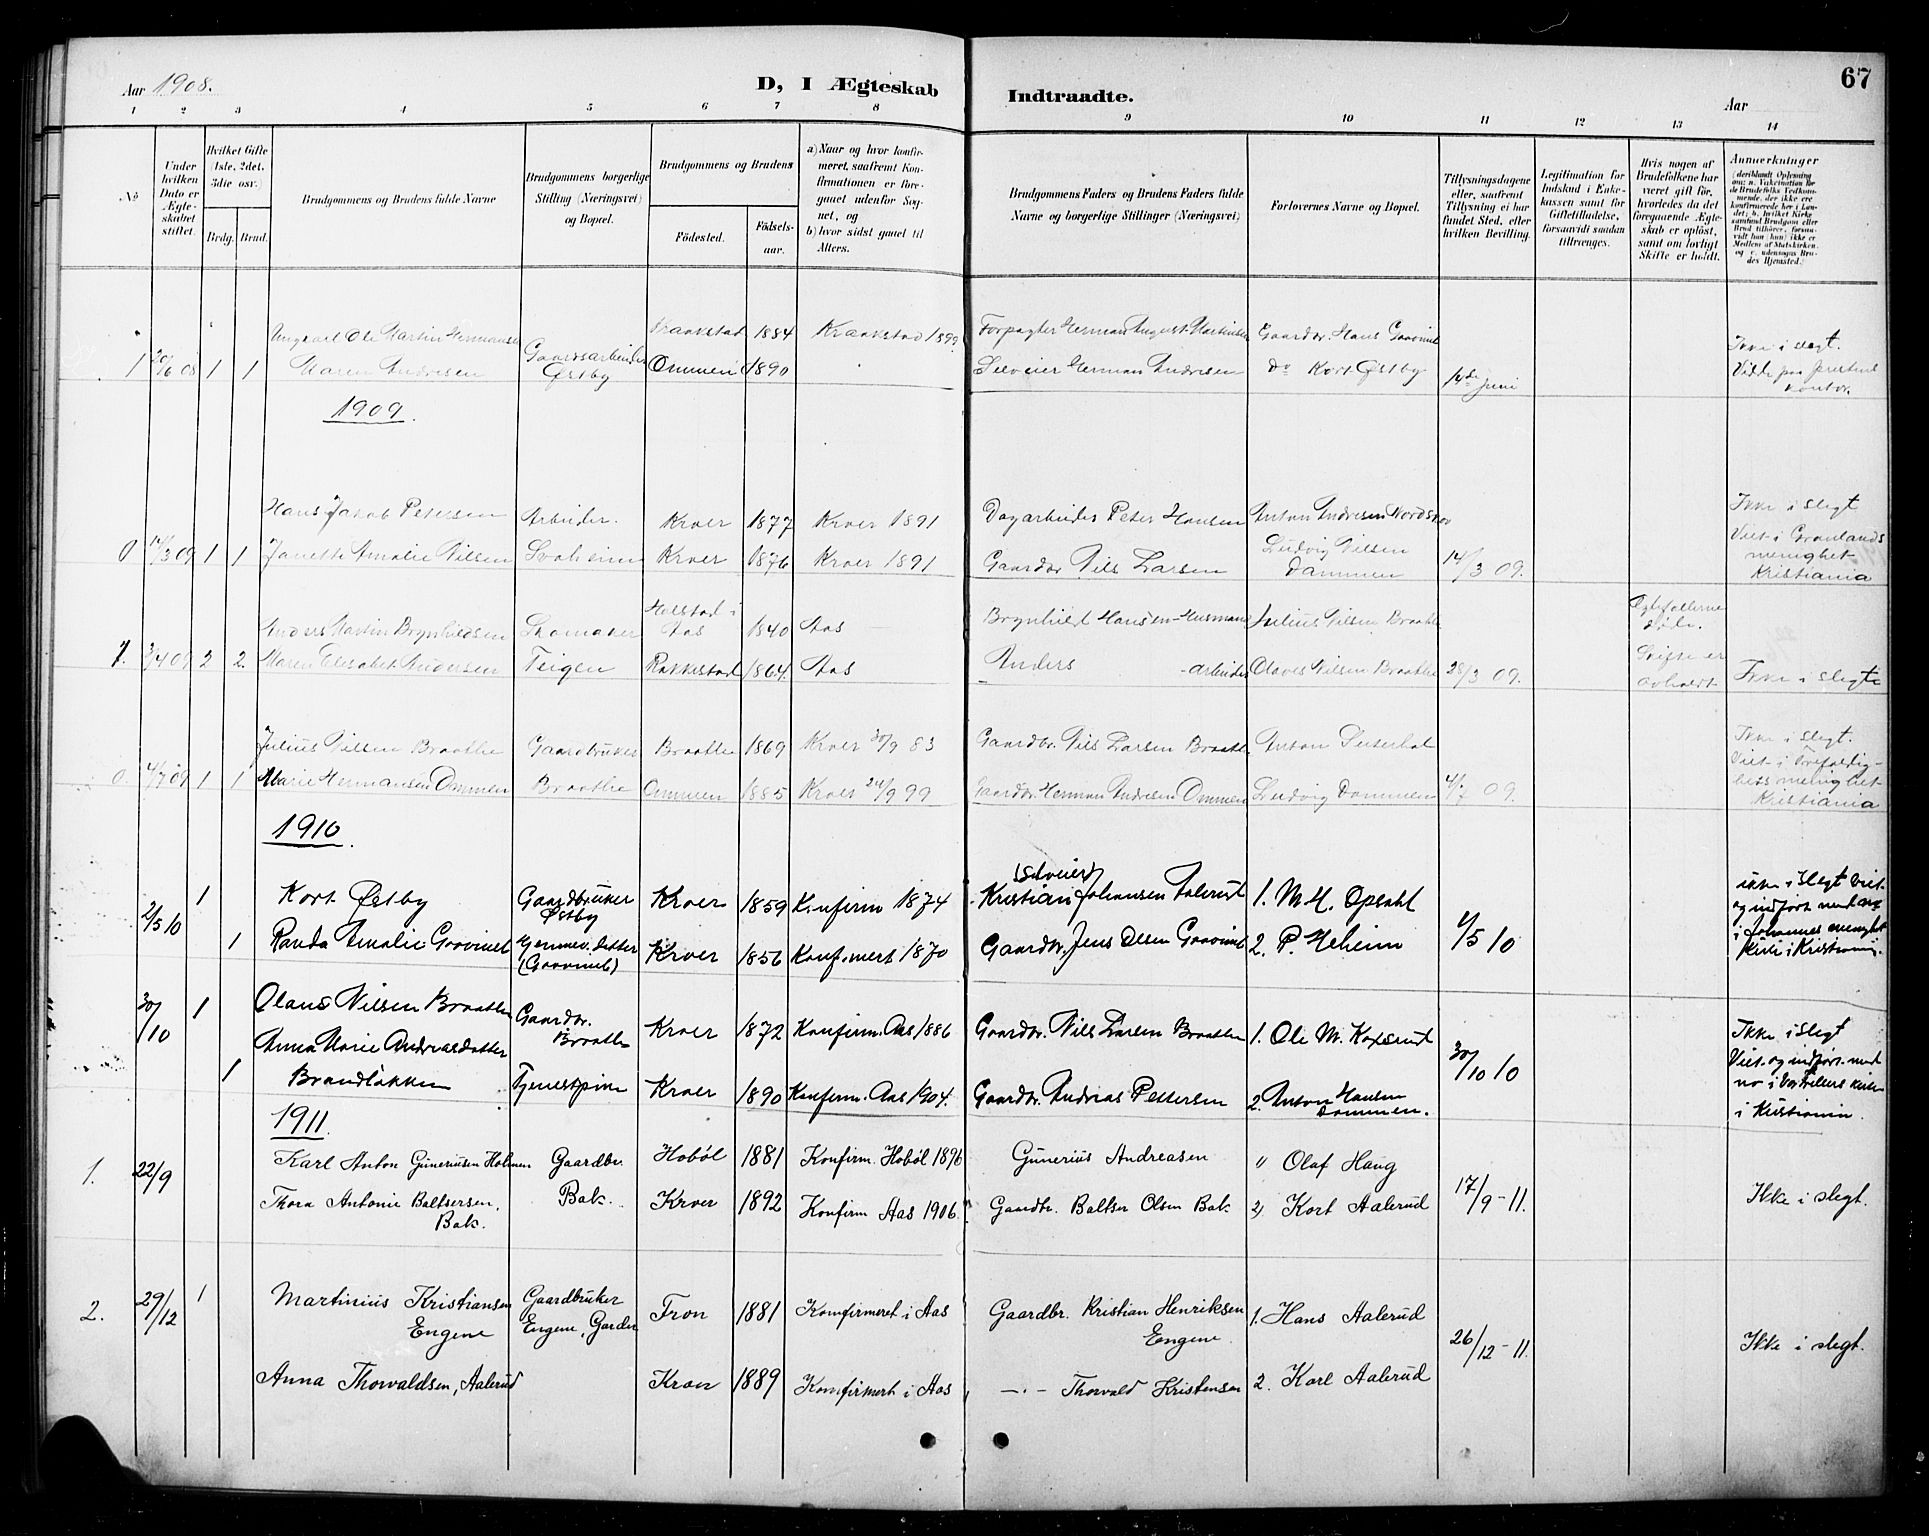 Aar 1908.
D, I Ægteskab
Indtraadte.
Aar
67
1 2 3 4 5 6 7 8 9 10 11 12 13 14
No
Under hvilken Dato er Ægte-skabet stiftet.
Hvilket Gifte (1ste, 2det, 3die osv.)
Brdg. Brud.
Brudgommens og Brudens fulde Navne
Brudgommens borgerlige Stilling (Næringsvei) og Bopæl.
Brudgommens og Brudens
Fødested.
Fødsels-aar.
a) Naar og hvor konfir-meret, saafremt Kon-firmationen er fore-gaaet udenfor Sog-net, og
b) hvor sidst gaaet til Alters.
Brudgommens Faders og Brudens Faders fulde Navne og borgerlige Stillinger (Næringsvei)
Forlovernes Navne og Bopæl.
Tillysningsdagene eller, saafremt Tillysning ei har fundet Sted, efter hvilken Bevilling.
Legitimation for Indskud i Enke-kassen samt for Giftetilladelse, forsaavidt saadan tiltrænges.
Hvis nogen af Brudefolkene har været gift før, hvorledes da det foregaaende Ægte-skab er opløst, samt om lovligt Skifte er holdt.
Anmerkninger
Ungkarl Ole Martin Hermansen Kraakstad 1884 Kraakstad 1899 Forpagter Herman August Martinsen Gaardbr Hans Graavinet
1 20/6 08 1 1 Maren Andresen Gaardsarbeider Østby Ommen 1890 Selveier Herman Andresen Do Kort Østby 14de Juni
Ikke i slegt.
Vidde paa
kontor.
1909.
Hans Jakob Petersen Arbeider. Kroer 1877 Kroer 1891 Dagarbeider Peter Hansen Anton Andresen Nordskov
0 14/3 09 1 1 Janette Amalie Nilsen Svaheim Kroer 1876 Kroer 1891 Gaardbr Nils Larsen Ludvig Nilsen Dammen 14/3 09.
Ikke i slegt
Viet i Grønlands
menighet
Kristiania
Anders Martin Brynhildsen Skomaker Holstad i Aas 1840 Aas Brynhild Hansen - Husmand Julius Nilsen Braathe
1. 3/4 09 2 2. Maren Elisabet Andersen Teigen Rakkestad 1864. Aas Anders - arbeider Olaves Nilsen Braathe 28/3 09.
Egtefællerne
døde.
Skifte er
avholdt
Ikke i slegt
Julius Nilsen Braathe Gaardbruker Braathe 1869 Kroer 30/9 83 Gaardbr. Nils Larsen Braathe Anton
0. 4/7 09 1 1 Marie Hermansen Ommen Braathe Ommen 1885 Kroer 24/9 99 Gaardbr. Herman Andresen Ommen Ludvig Dammen 4/7 09.
Ikke i slegt.
Viet i Trefoldig-
hets menighet
Kristiania
1910.
(Selveier)
2/5 10 1 Kort Østby Gaardbruker Østby Kroer 1859 Konfirm 1874 Kristian Johansen Aalerud 1. M. H. Opsahl
1 Randa Amalie Graavinet Hjemmev. datter (Graavinet) Kroer 1856 Konfirmert 1870 Gaardbr. Jens Olsen Graavinet 2. P. Heheim 1/5 10
ikke i slegt Viet
og indført
i Johannes menighet
Kirke i Kristiania.
30/10 1 Olaus Nilsen Braathen Gaardbr. Braathe Kroer 1872 Konfirm. Aas 1886 Gaardbr. Nils Larsen Braathen 1. Ole M. Kaxsrud
1 Anna Marie Andreasdatter Brandløkken Tjenestpike Kroer 1890 Konfirm. Aas 1904. Gaardbr. Andreas Pettersen 2. Anton Hansen Dammen. 30/10 10
Ikke i slegt
Viet og indført med
no i Vor Frelsers kirke
i Kristiania.
1911.
1. 22/9 Karl Anton Guneriusen Holmen Gaardbr. Hobøl 1881 Konfirm. Hobøl 1896 Gunerius Andreasen 1) Olaf Haug
Thora Antonie Baltsersen, Bak. Bak. Kroer 1892 Konfirm Aas 1906. Gaardbr. Baltser Olsen Bak 2) Kort Aalerud 17/9 - 11. Ikke i slegt.
2. 29/12 1 Martinius Kristiansen Engene Gaardbruker Engene, Garder Fron 1881 Komfirmeret i Aas Gaardbr. Kristian Henriksen Engene. 1. Hans Aalerud
26/12 - 11. Ikke i slegt.
Anna Thorvaldsen, Aalerud Kroer 1889 Komfirmert i Aas — " — Thorvald Kristensen 2. Karl Aalerud